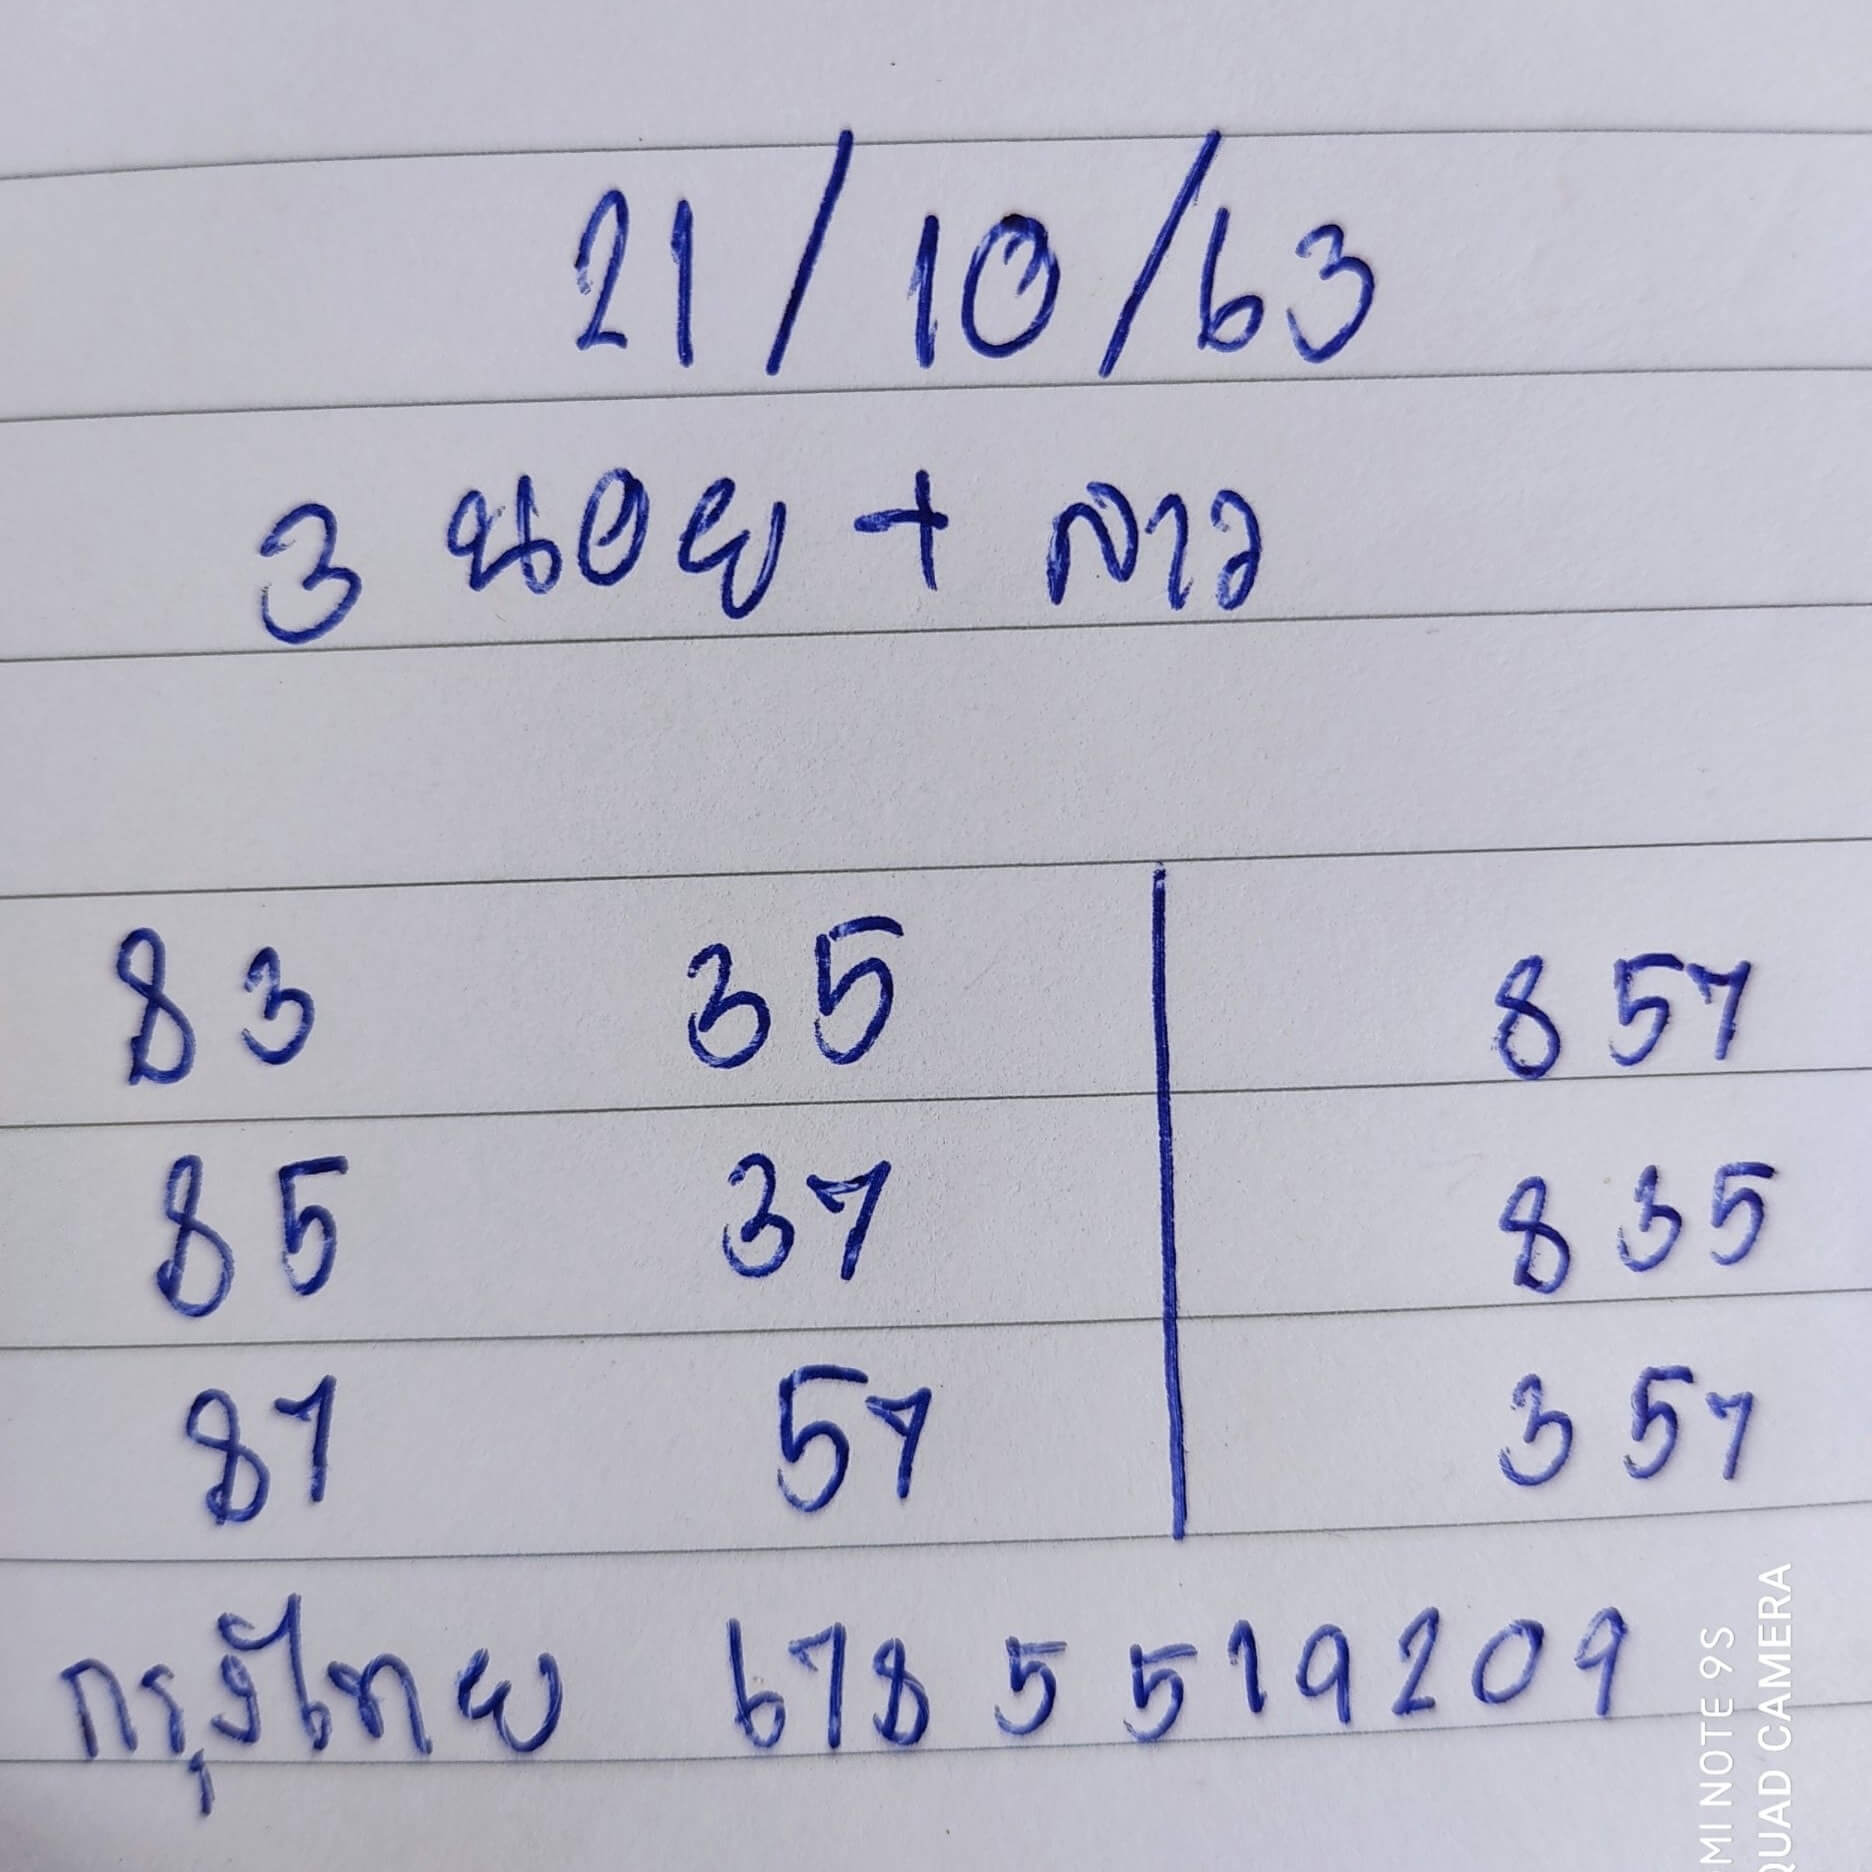 21/10/63
3 นอย + ลาว
83 35 857
85 37 835
87 57 357
กรุงไทย 6785519209
MI NOTE 9S
QUAD CAMERA